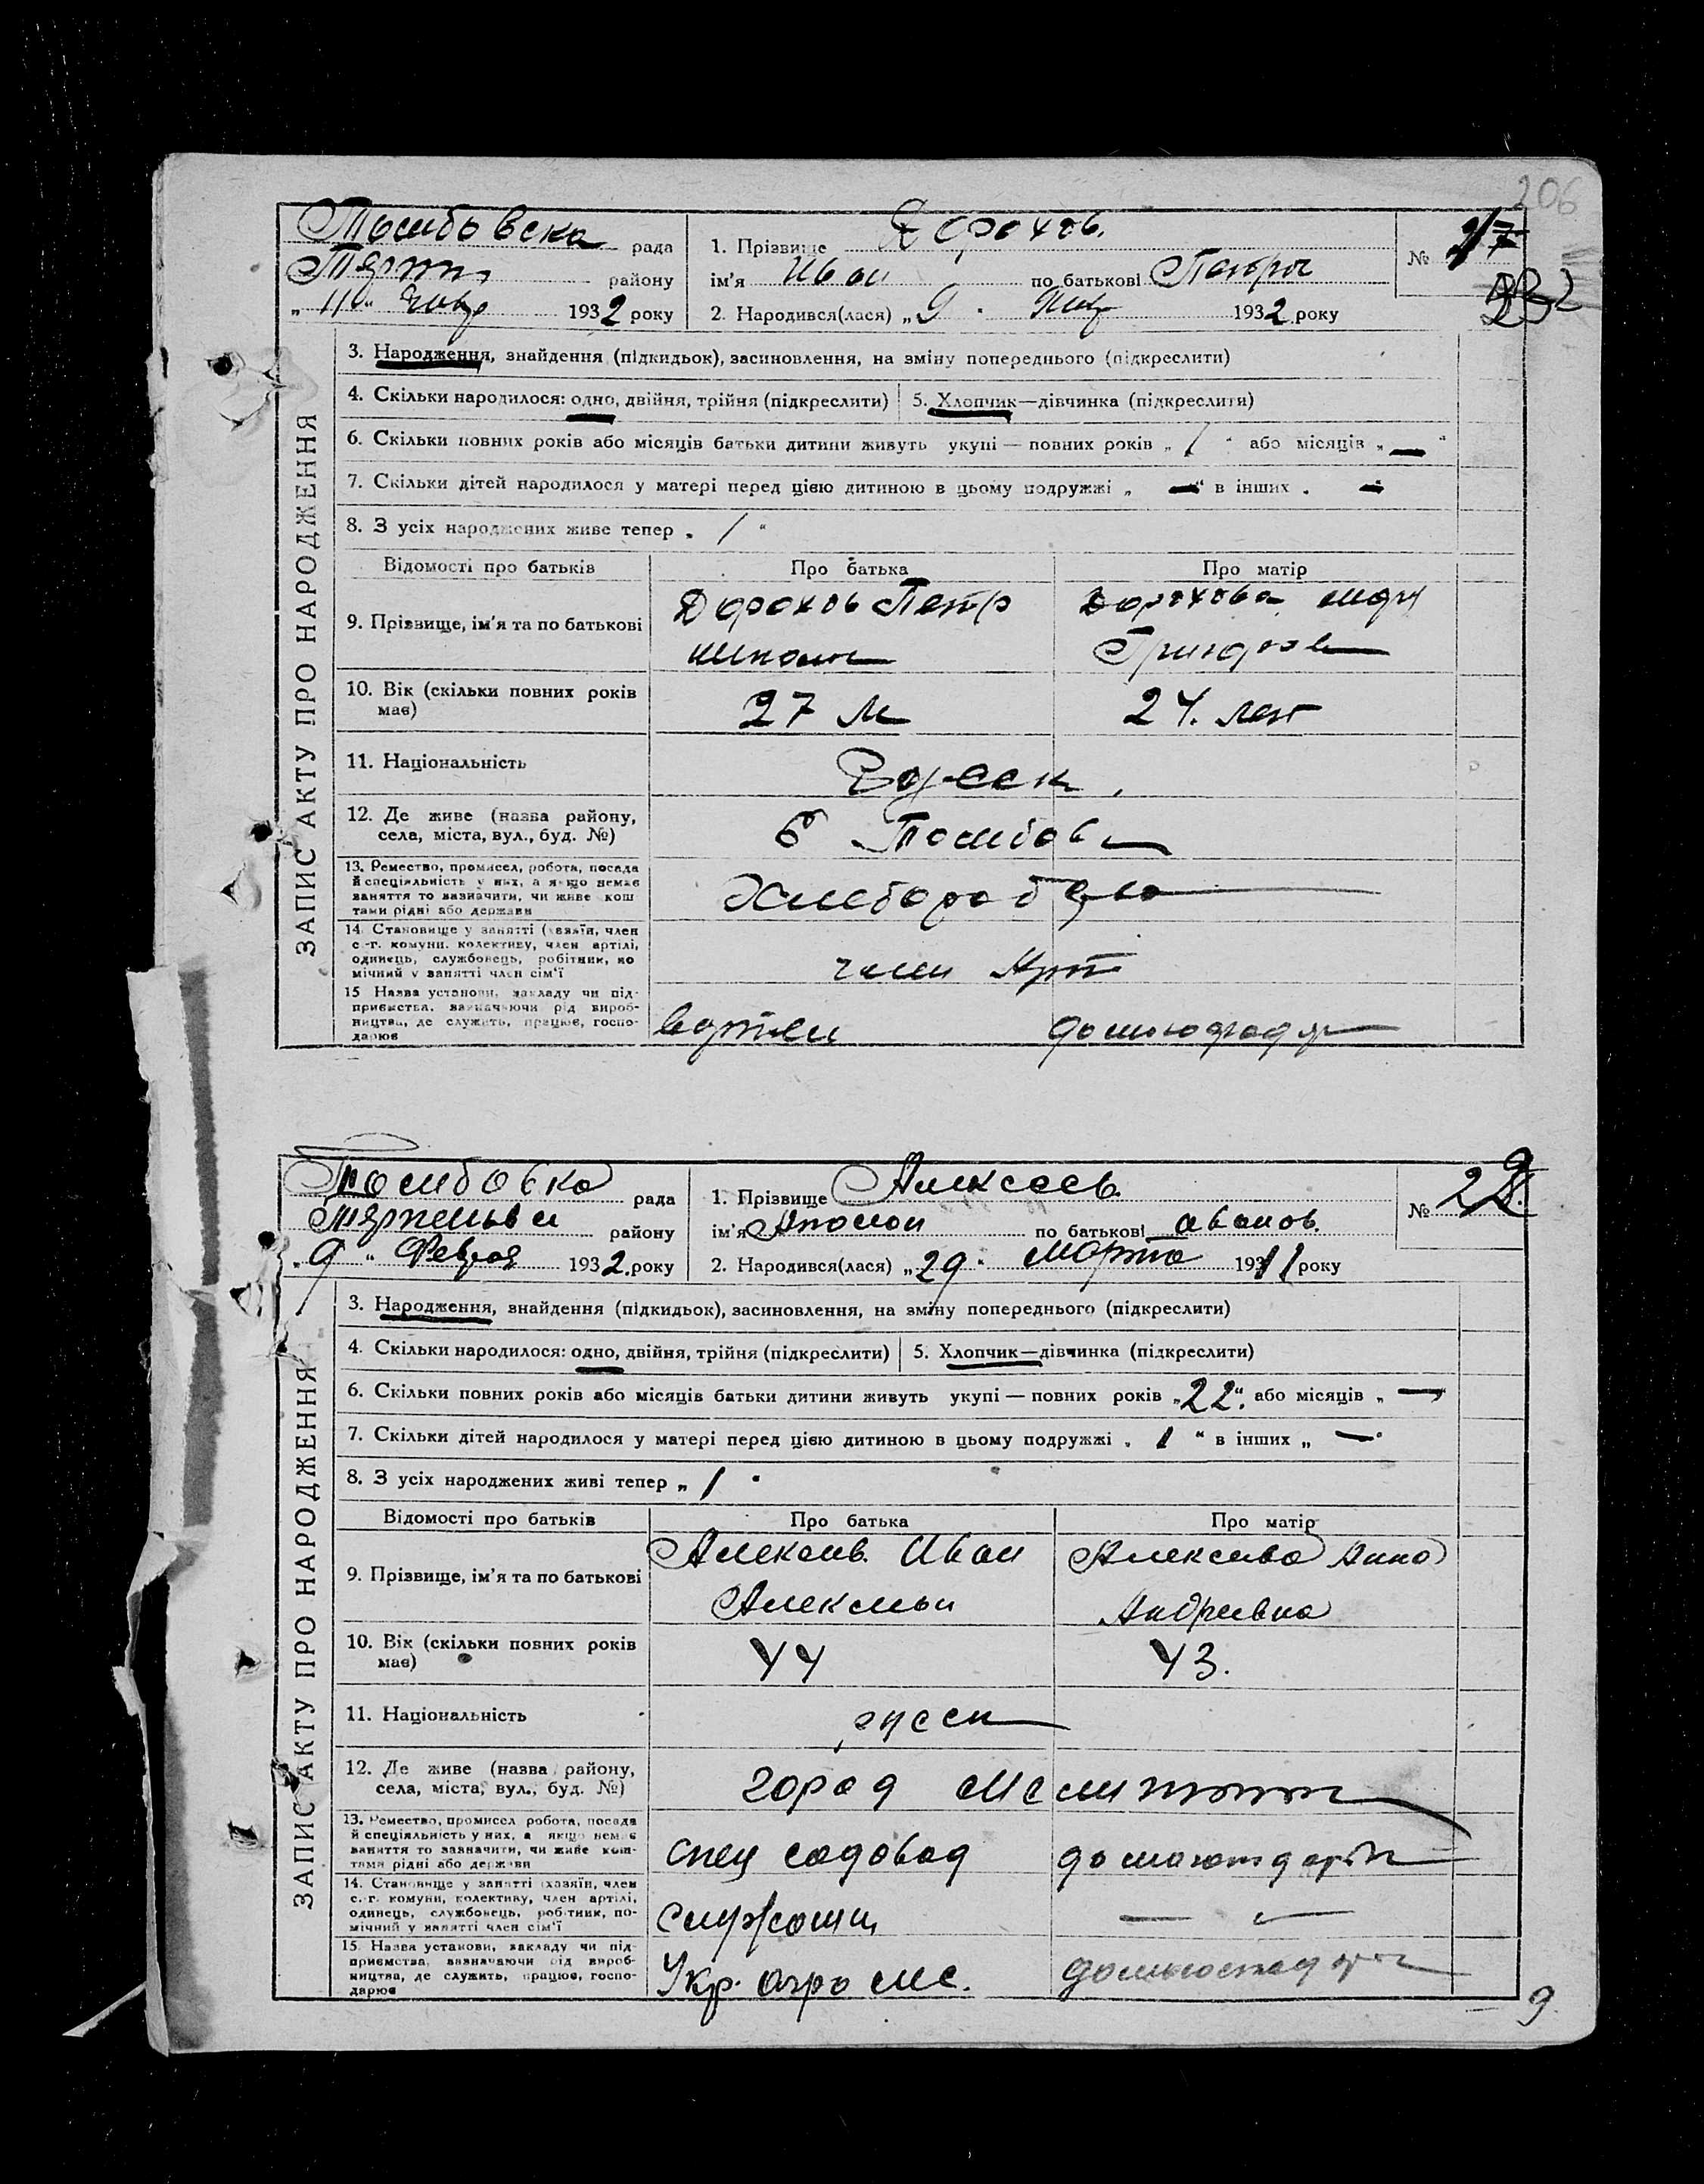 206
Тамбовска рада
1. Прізвище Дорохов.
№ 17
району
ім'я Иван по батькові Петров
232
„11" Янвр 1932 року
2. Народився(лася) „9 " Янвр 1932 року
ЗАПИС АКТУ ПРО НАРОДЖЕННЯ
3. Народження, знайдення (підкидьок), засиновлення, на зміну попереднього (підкреслити)
4. Скільки народилося: одно, двійня, трійня (підкреслити) 5. Хлопчик—дівчинка (підкреслити)
6. Скільки повних років або місяців батьки дитини живуть укупі — повних років „ 1 " або місяців „ — "
7. Скільки дітей народилося у матері перед цією дитиною в цьому подружжі „ — " в інших „ — "
8. З усіх народжених живе тепер „ 1 "
Відомості про батьків Про батька Про матір
9. Прізвище, ім'я та по батькові
Дорохов Петр
Дорохова Мар
10. Вік (скільки повних років має)
27 л
24. лет
11. Національність
Русск
12. Де живе (назва району, села, міста, вул., буд. №)
с Тамбов
13. Ремество, промисел, робота, посада
й спеціяльність у них, а якщо немає
заняття то зазначити, чи живе кош
тами рідні або держави
Хлебороб
14. Становище у занятті (хазяїн, член
с.-г. комуни, колективу, член артілі,
одинець, службовець, робітник, по
мічний у занятті член сім'ї
член Арт
15 Назва установи, закладу чи під-
приємства, зазначаючи рід вироб-
ництва, де служить, працює, госпо-
дарює
в артели
Тамбовка рада
1. Прізвище Алексеев.
№ 22.
району
ім'я по батькові Иванов.
„ 9 " Феврал 1932. року
2. Народився(лася) „29 " Марта 1911 року
ЗАПИС АКТУ ПРО НАРОДЖЕННЯ
3. Народження, знайдення (підкидьок), засиновлення, на зміну попереднього (підкреслити)
4. Скільки народилося: одно, двійня, трійня (підкреслити) 5. Хлопчик—дівчинка (підкреслити)
6. Скільки повних років або місяців батьки дитини живуть укупі — повних років „22". або місяців „ — "
7. Скільки дітей народилося у матері перед цією дитиною в цьому подружжі „ 1 " в інших „ — "
8. З усіх народжених живі тепер „ 1 "
Відомості про батьків Про батька Про матір
9. Прізвище, ім'я та по батькові
Алексеев. Иван
Алексеева Анна
Андреевна
10. Вік (скільки повних років має)
44
43.
11. Національність
русск
12. Де живе (назва району, села, міста, вул., буд. №)
город Мелитопол
13. Ремество, промисел, робота, посада
й спеціяльність у них, а якщо немає
заняття то зазначити, чи живе кош-
тами рідні або держави
спец садовод
14. Становище у занятті (хазяїн, член
с.-г. комуни, колективу, член артілі,
одинець, службовець, робітник, по-
мічний у занятті член сім'ї
15. Назва установи, закладу чи під-
приємства, зазначаючи рід вироб-
ництва, де служить, працює, госпо-
дарює
9.